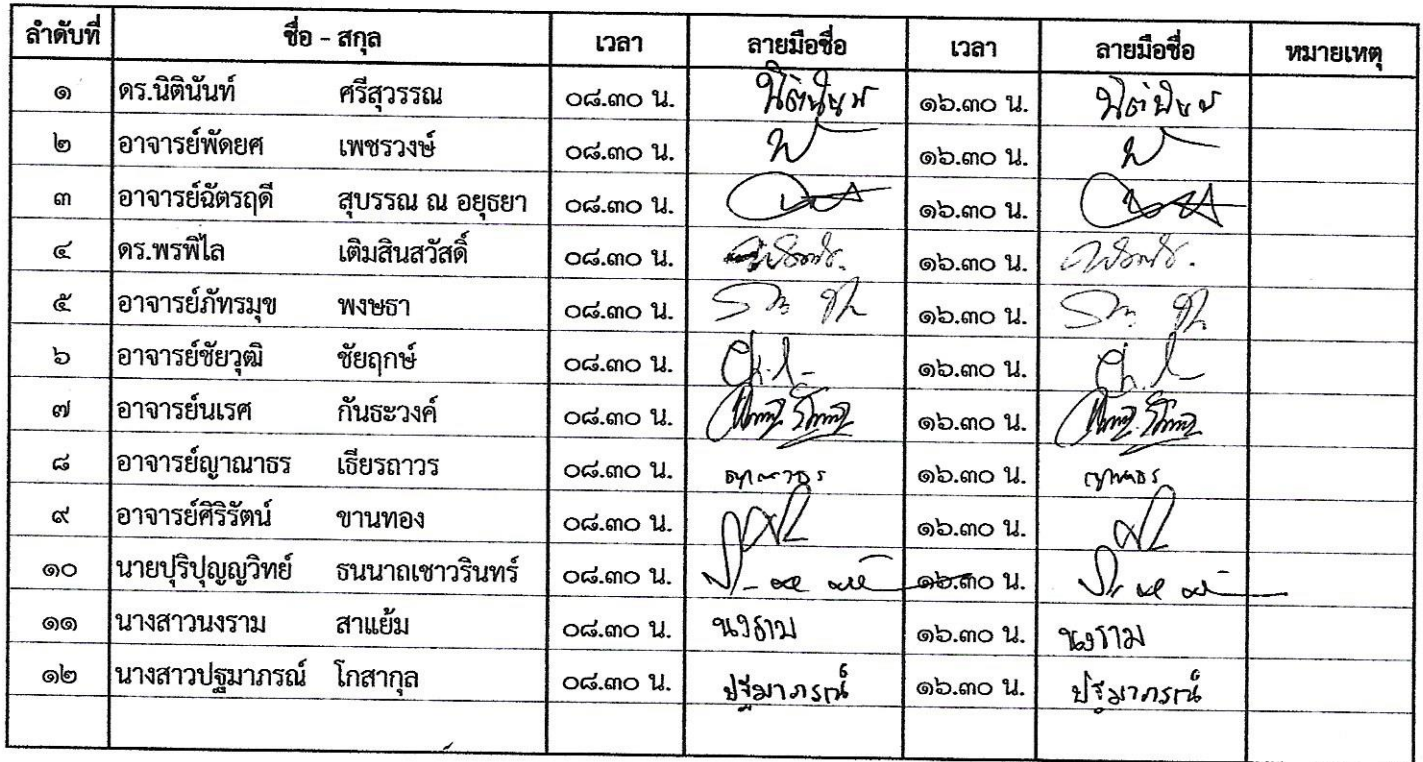 ลำดับที่ ชื่อ - สกุล เวลา ลายมือชื่อ เวลา ลายมือชื่อ หมายเหตุ
๑ ดร.นิตินันท์ ศรีสุวรรณ ๐๘.๓๐ น. ๑๖.๓๐ น.
๒ อาจารย์พัดยศ เพชรวงษ์ ๐๘.๓๐ น. ๑๖.๓๐ น.
๓ อาจารย์ฉัตรฤดี สุบรรณ ณ อยุธยา ๐๘.๓๐ น. ๑๖.๓๐ น.
๔ ดร.พรพิไล เติมสินสวัสดิ์ ๐๘.๓๐ น. ๑๖.๓๐ น.
๕ อาจารย์ภัทรมุข พงษธา ๐๘.๓๐ น. ๑๖.๓๐ น.
๖ อาจารย์ชัยวุฒิ ชัยฤกษ์ ๐๘.๓๐ น. ๑๖.๓๐ น.
๗ อาจารย์นเรศ กันธะวงค์ ๐๘.๓๐ น. ๑๖.๓๐ น.
๘ อาจารย์ญาณาธร เธียรถาวร ๐๘.๓๐ น. ญาณาธร ๑๖.๓๐ น. ญาณาธร
๙ อาจารย์ศิริรัตน์ ขานทอง ๐๘.๓๐ น. ๑๖.๓๐ น.
๑๐ นายปุริปุญญวิทย์ ธนนาถเชาวรินทร์ ๐๘.๓๐ น. ๑๖.๓๐ น.
๑๑ นางสาวนงราม สาแย้ม ๐๘.๓๐ น. นงราม ๑๖.๓๐ น. นงราม
๑๒ นางสาวปฐมาภรณ์ โกสากุล ๐๘.๓๐ น. ปฐมาภรณ์ ๑๖.๓๐ น. ปฐมาภรณ์